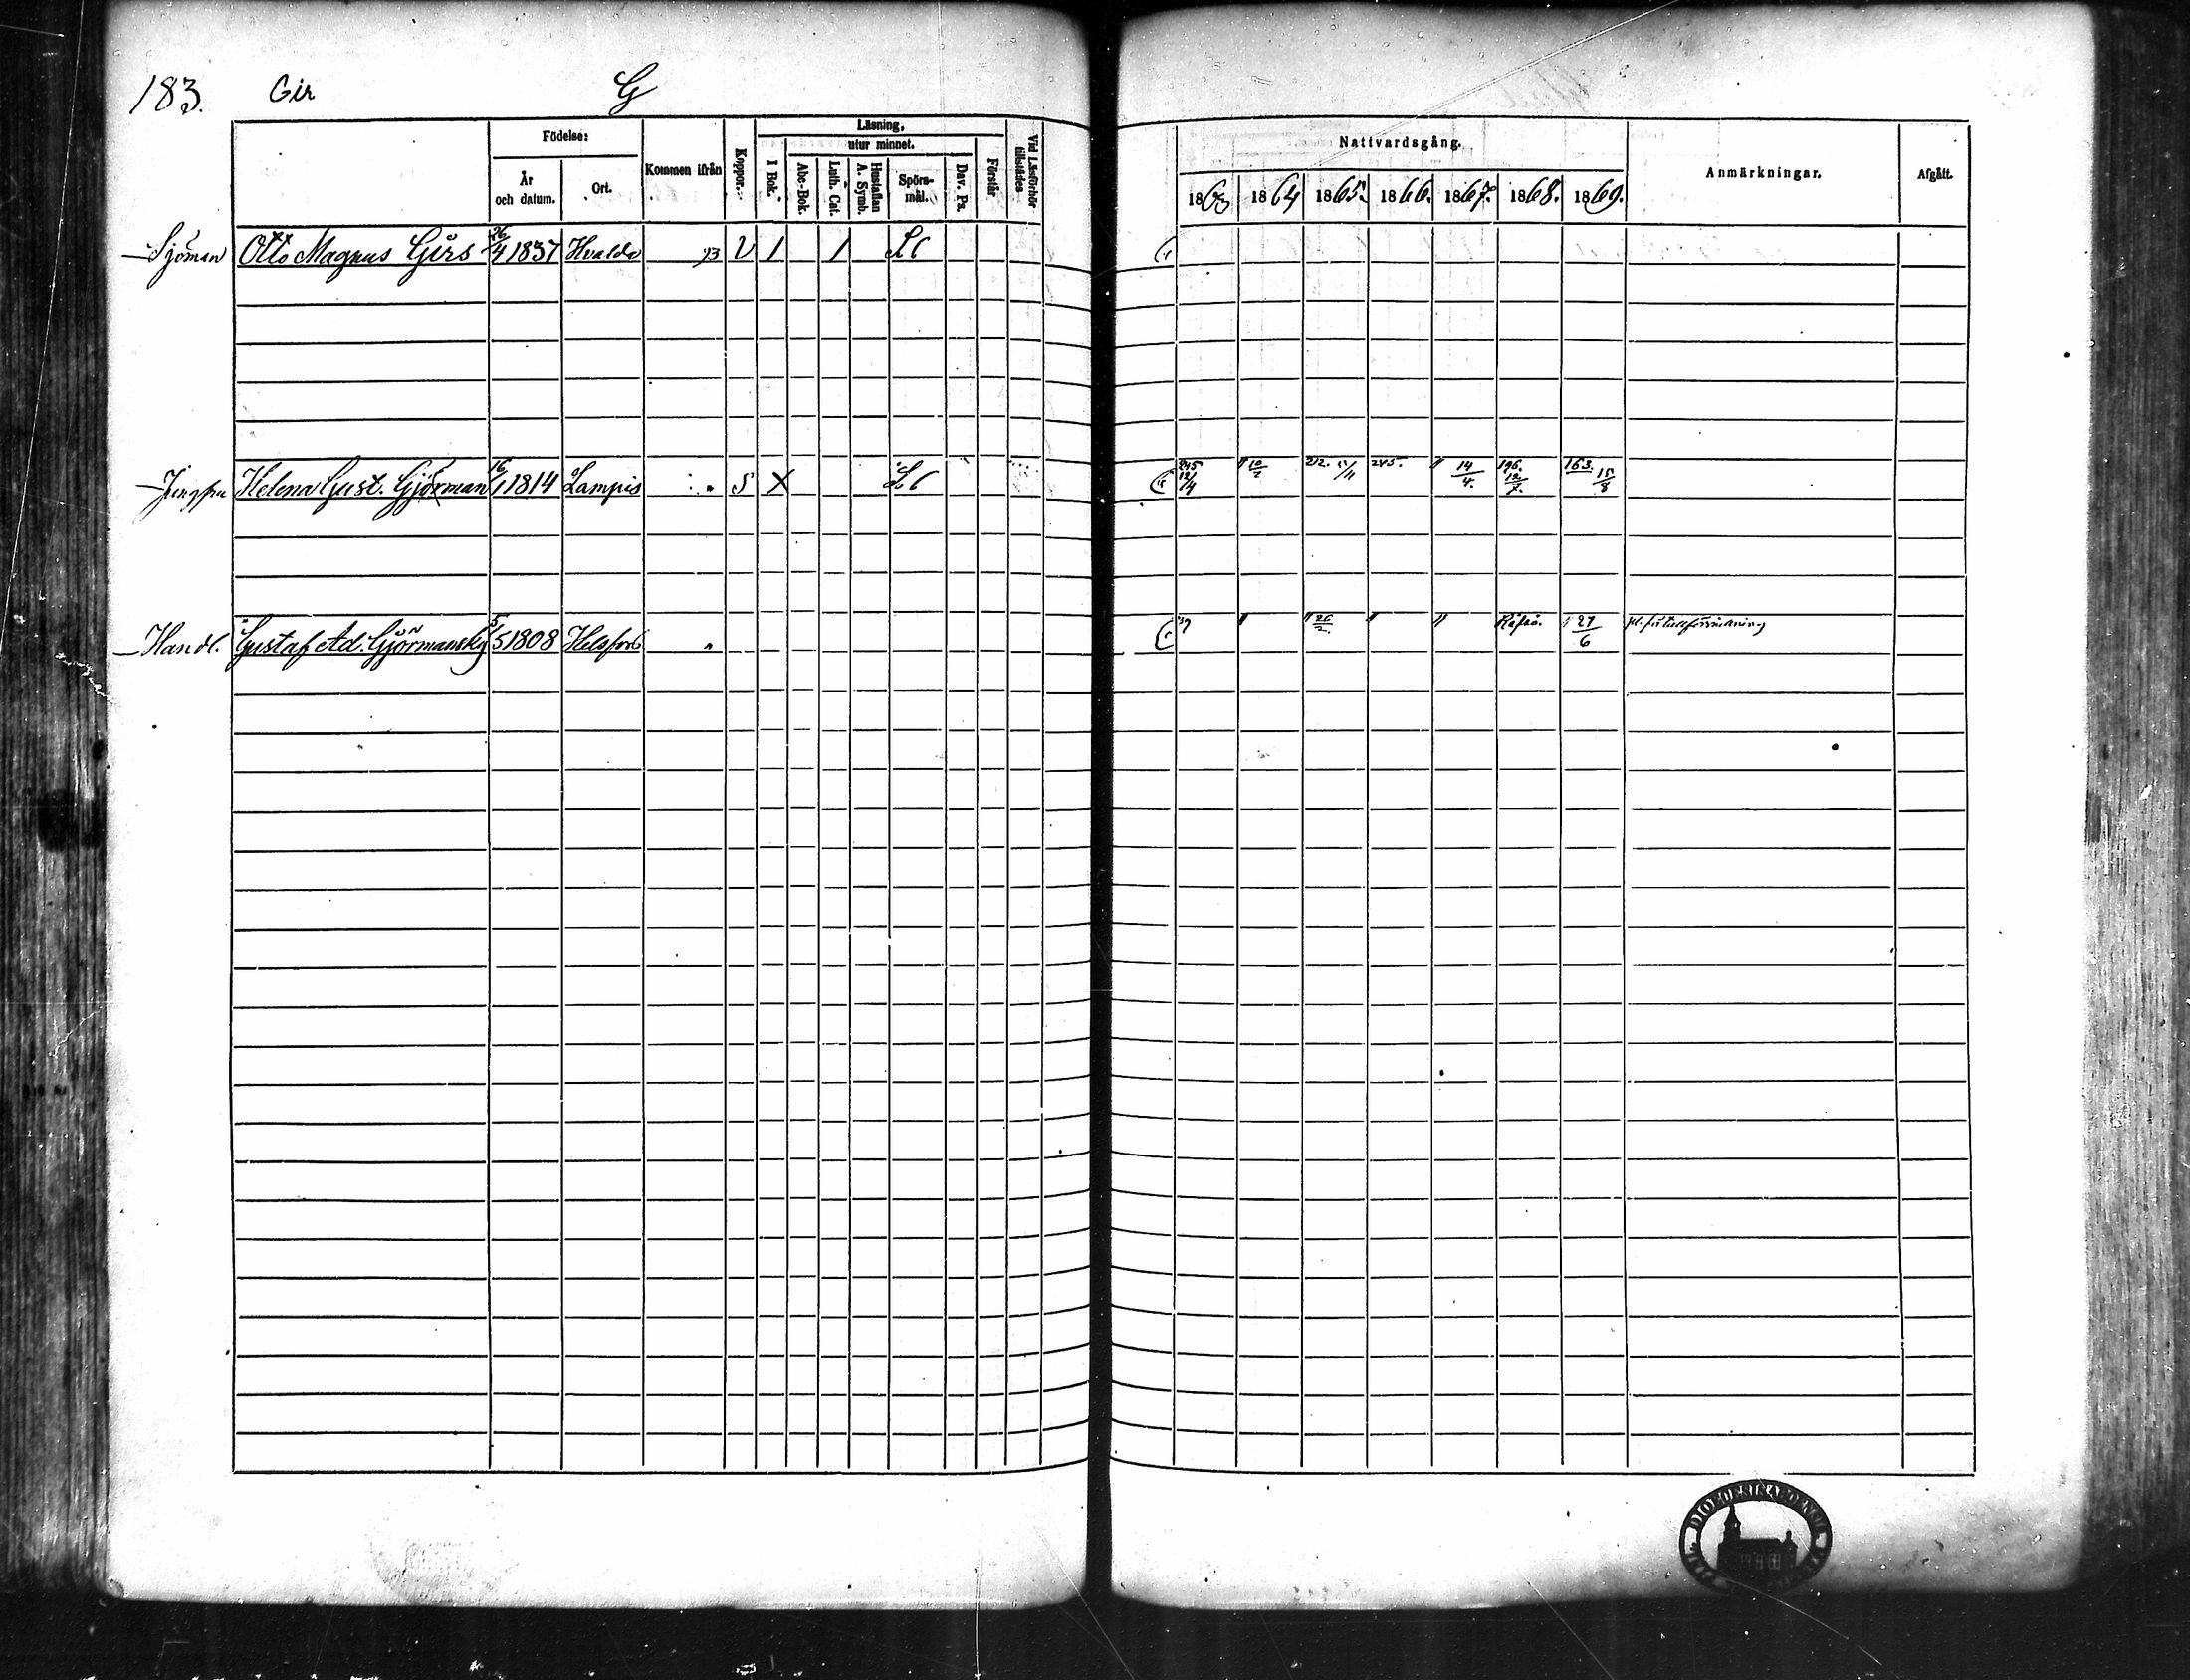 183. Gir G
Födelse: Läsning, Nattvardsgång.
År och datum. Ort. Kommen ifrån Koppor. I Bok. utur minnet. Abc-Bok. Luth. Cat. Hustaflan A. Symb. Spörsmål. Dav. Ps. Förstår Vid Läsförhör tillstädes 1863 1864 1865. 1866. 1867. 1868. 1869. Anmärkningar. Afgått.
Sjöman Otto Magnus Girs 26/4 1837 Hvalda 23 V I I LC
Jungfru Helena Gust. Gjörman 16/1 1814 Lampis " S X LC 245 12/4 " 212. 245. " 14/4. 196. 12/7. 163. 15/8
Handl. Gustaf Ad. Gjörmansky 5/5 1808 Helsfors " " " 26/2. " " Räfsö. 27/6